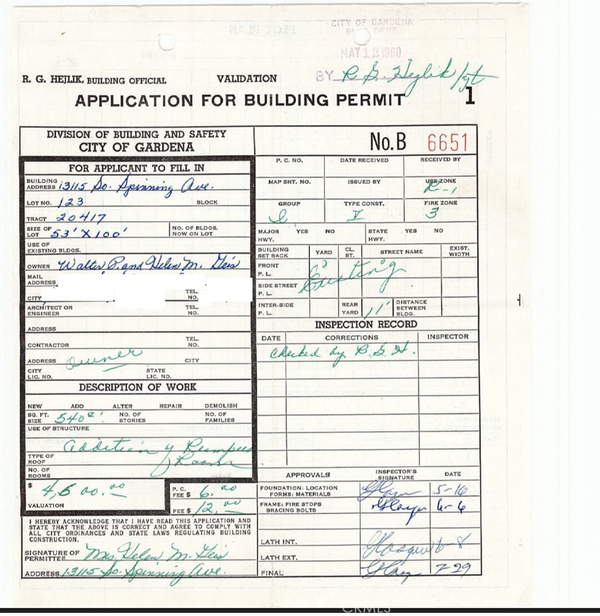 CITY OF GARDENA
MAY 12 1960
R. G. HEJLIK, BUILDING OFFICIAL VALIDATION BY R. G. Hejlik/
APPLICATION FOR BUILDING PERMIT 1
DIVISION OF BUILDING AND SAFETY
CITY OF GARDENA
No. B 6651
FOR APPLICANT TO FILL IN
BUILDING ADDRESS 13115 So. Spinning Ave.
LOT NO. 123 BLOCK
TRACT 20417
SIZE OF LOT 53' X 100' NO. OF BLDGS. NOW ON LOT
USE OF EXISTING BLDGS.
OWNER Walter P. and Helen M. Geis
MAIL ADDRESS
CITY TEL. NO.
ARCHITECT OR ENGINEER TEL. NO.
ADDRESS
CONTRACTOR TEL. NO.
ADDRESS Owner CITY
CITY LIC. NO. STATE LIC. NO.
DESCRIPTION OF WORK
NEW ADD ALTER REPAIR DEMOLISH
SQ. FT. SIZE 540 NO. OF STORIES NO. OF FAMILIES
USE OF STRUCTURE
Addition of Rumpus Room
TYPE OF ROOF
NO. OF ROOMS
$ 4,500.00
VALUATION
P. C. FEE $ 6.00
FEE $ 12.00
I HEREBY ACKNOWLEDGE THAT I HAVE READ THIS APPLICATION AND
STATE THAT THE ABOVE IS CORRECT AND AGREE TO COMPLY WITH
ALL CITY ORDINANCES AND STATE LAWS REGULATING BUILDING
CONSTRUCTION.
SIGNATURE OF PERMITTEE Mrs Helen M. Geis
ADDRESS 13115 So. Spinning Ave.
P. C. NO. DATE RECEIVED RECEIVED BY
MAP SHT. NO. ISSUED BY USE ZONE
R-1
GROUP TYPE CONST. FIRE ZONE
I V 3
MAJOR HWY. YES NO STATE HWY. YES NO
BUILDING SET BACK YARD CL. ST. STREET NAME EXIST. WIDTH
FRONT P. L.
SIDE STREET P. L. Existing
INTER-SIDE P. L. REAR YARD 11' DISTANCE BETWEEN BLDG.
INSPECTION RECORD
DATE CORRECTIONS INSPECTOR
Checked by R. G. H.
APPROVALS INSPECTOR'S SIGNATURE DATE
FOUNDATION: LOCATION FORMS: MATERIALS 5-16
FRAME: FIRE STOPS BRACING BOLTS 6-6
LATH INT. 8
LATH EXT.
FINAL 7-29
CRMLS